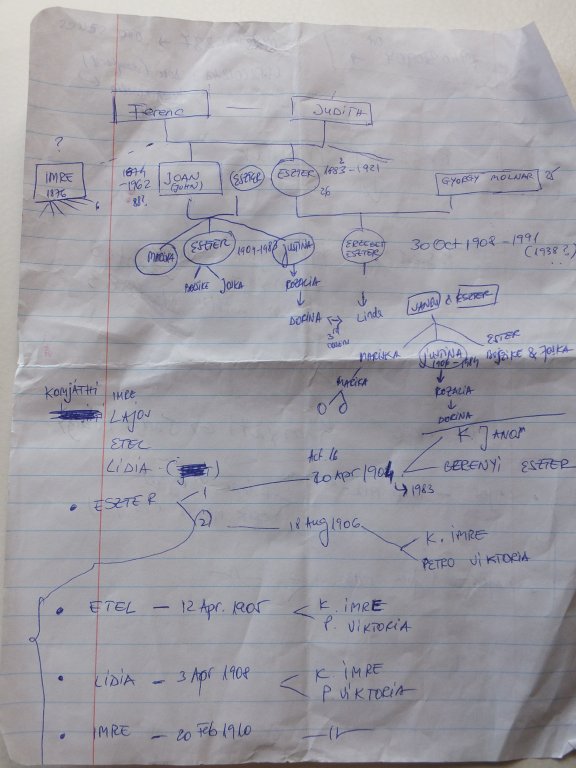 Ferenc — JUDITH
?
IMRE
1876
1874
-1962
88?
JOAN
(JOHN)
ESZTER
ESZTER
1983? - 1921
26
GYORGY MOLNAR
MARISKA
ESZTER
1904-1983
JUSTINA
ERZEBET
ESZTER
30 Oct 1908 - 1991
(1938?)
BOJIKE
JOLKA
ROZALIA
DORINA
3rd
Linda
JANOS & ESZTER
MARISKA
JUSTINA
ESTER
BOJZIKE & JOLKA
MARIKA
ROZALIA
DORINA
KOMJÁTHI IMRE
LAJOS
ETEL
LÍDIA
K. JANOS
Act 16
• ESZTER 1 — 20 Apr 1904
GERENYI ESZTER
→ 1983
2 — 18 Aug 1906
K. IMRE
PETRO VIKTORIA
• ETEL — 12 Apr. 1905
K. IMRE
P. VIKTORIA
• LÍDIA — 3 Apr 1908
K IMRE
P. VIKTORIA
• IMRE — 20 Feb 1910 — 11 —